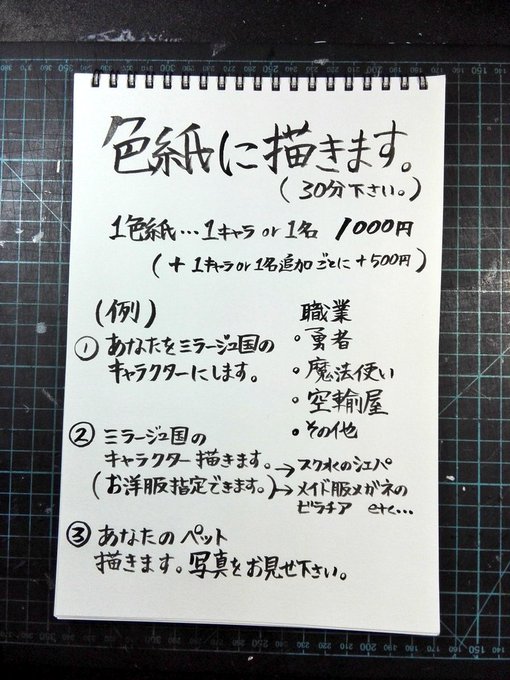 色紙に描きます。
(30分下さい。)
1色紙…1キャラor1名 1000円
(+1キャラor1名追加ごとに+500円)
(例)
① あなたをミラージュ国の
キャラクターにします。
職業
・勇者
・魔法使い
・空輸屋
・その他
② ミラージュ国の
キャラクター描きます。
(お洋服指定できます。)
→スク水のシェパ
→メイド服メガネの
ピラチア etc…
③ あなたのペット
描きます。写真をお見せ下さい。